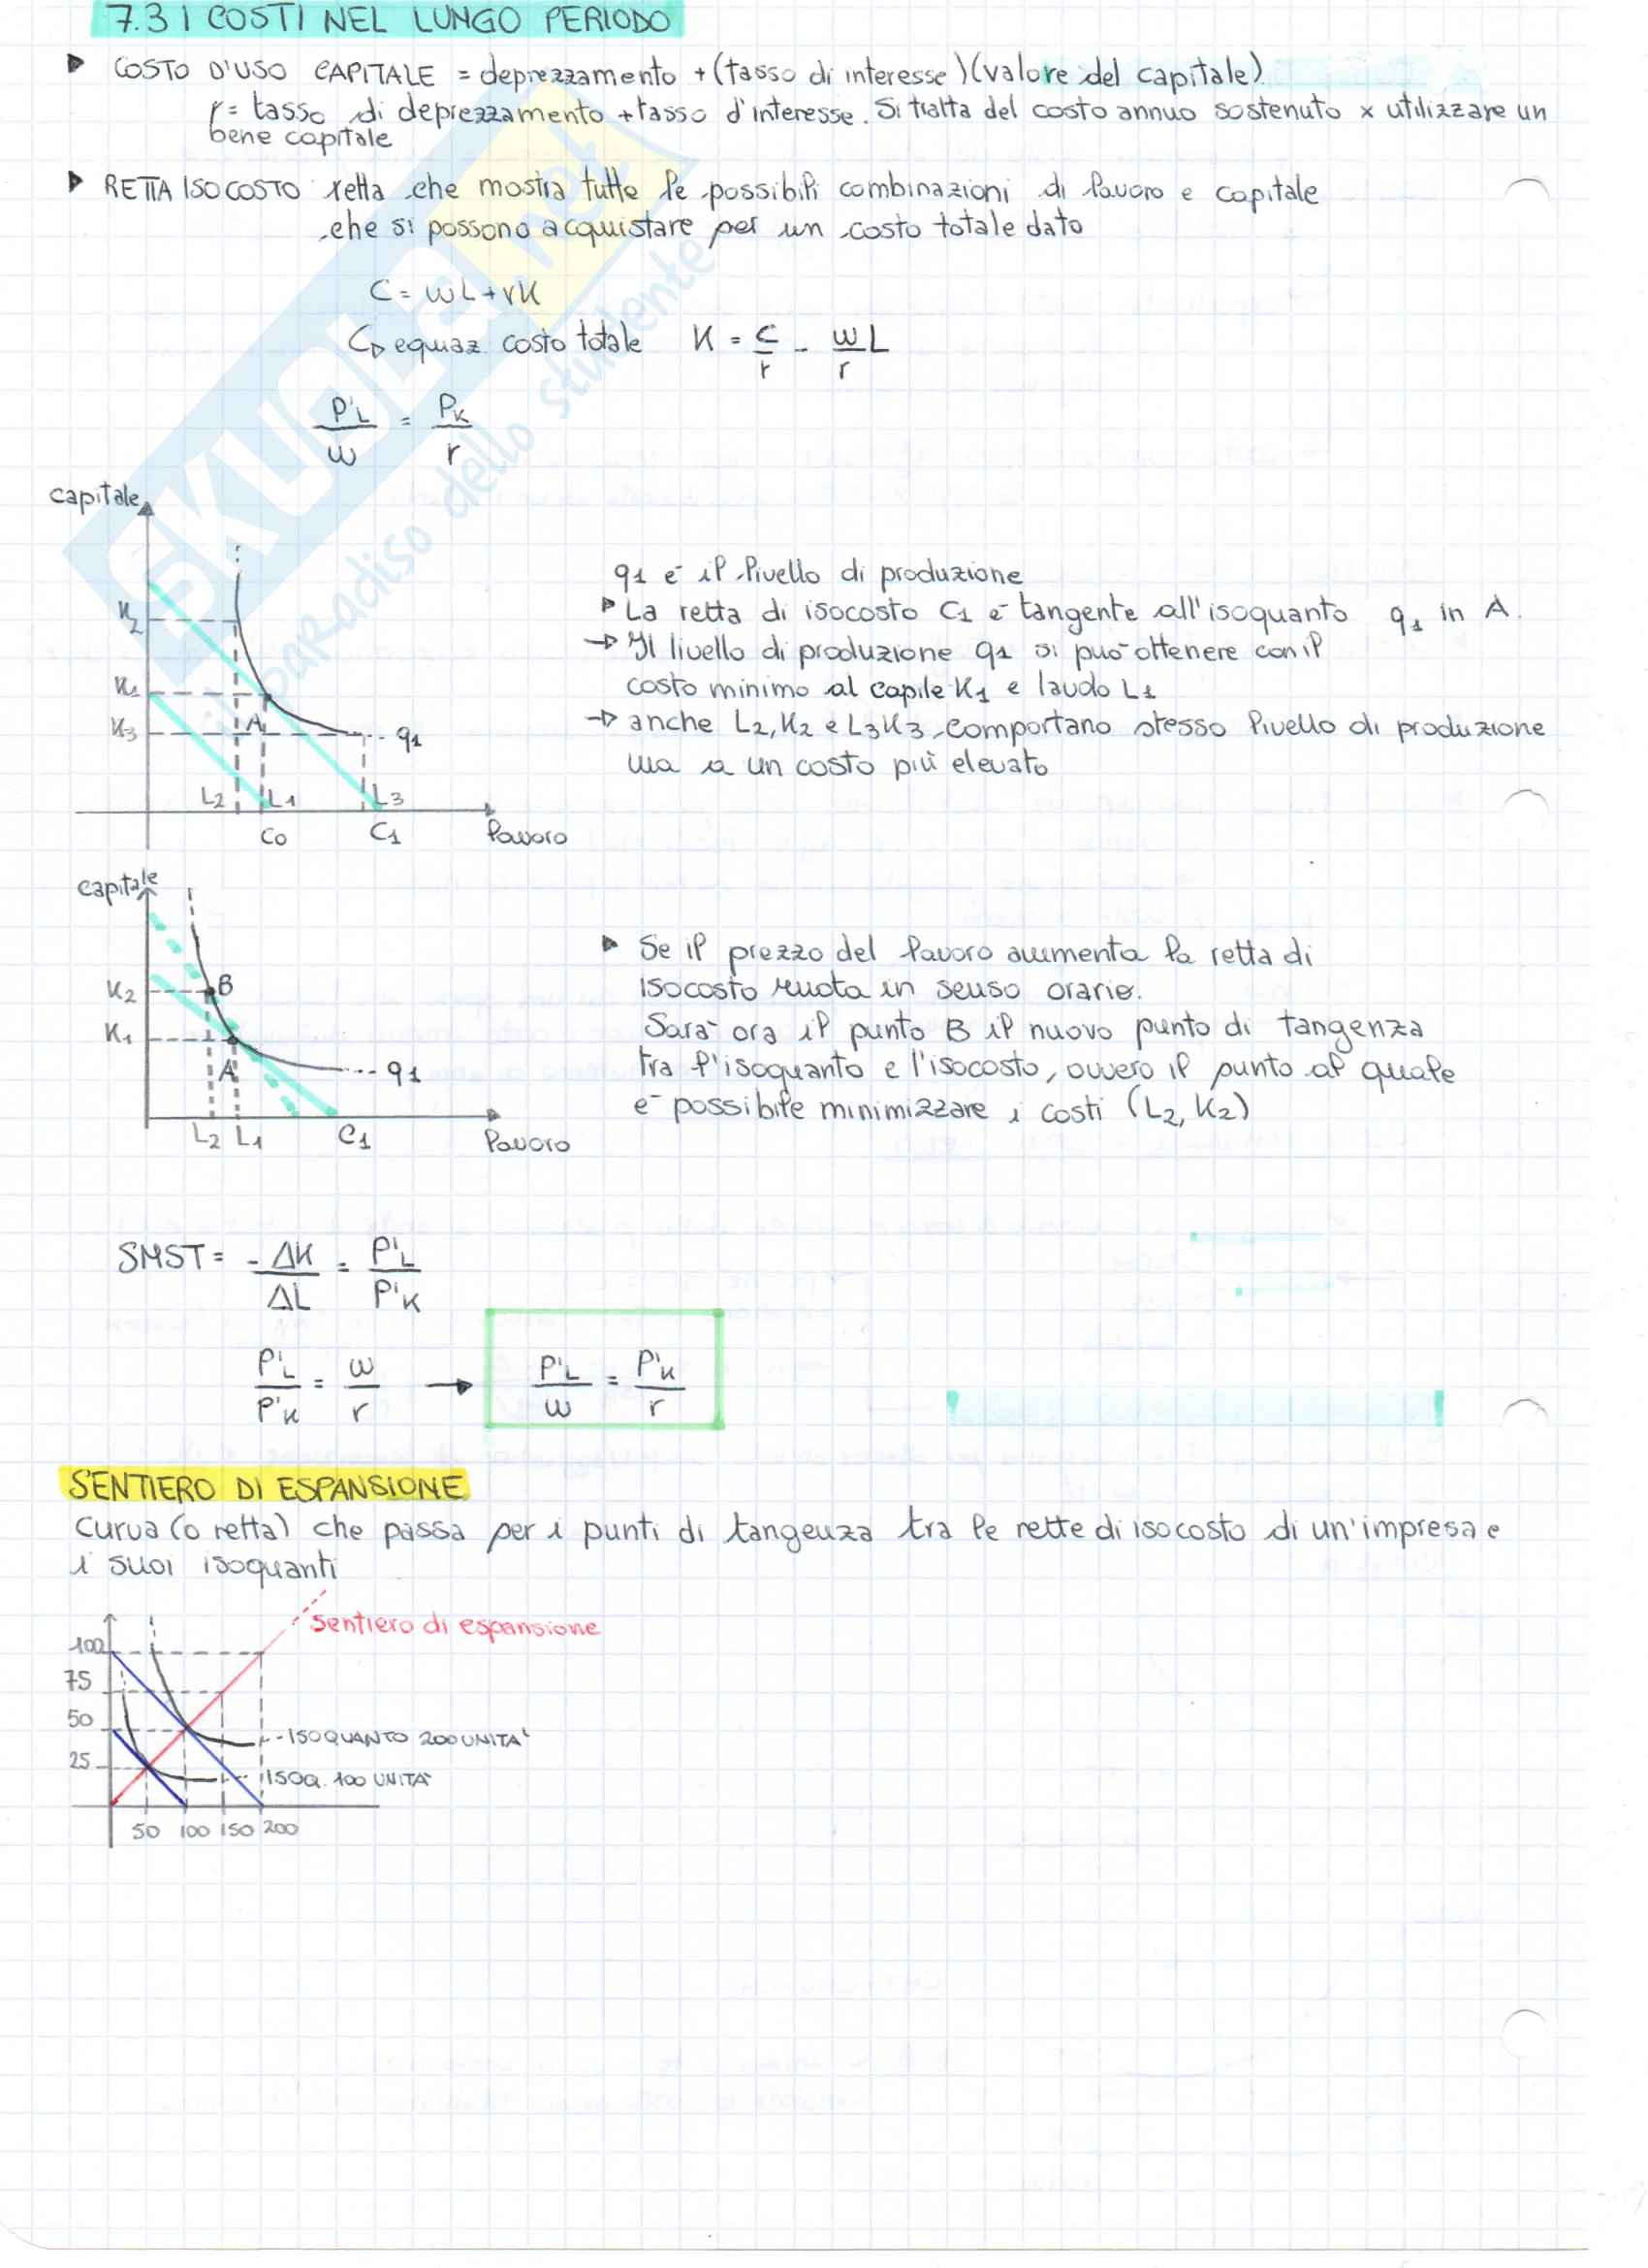 7.3 I COSTI NEL LUNGO PERIODO
COSTO D'USO CAPITALE = deprezzamento + (tasso di interesse)(valore del capitale)
r = tasso di deprezzamento + tasso d'interesse. Si tratta del costo annuo sostenuto x utilizzare un
bene capitale
RETTA ISOCOSTO retta che mostra tutte le possibili combinazioni di lavoro e capitale
che si possono acquistare per un costo totale dato
C = wL + rK
equaz costo totale K = C/r - w/r L
P'L/w = PK/r
capitale
K2
K1
K3
A
q1
L2 L1 L3
C0 C1 lavoro
q1 è il livello di produzione
La retta di isocosto C1 è tangente all'isoquanto q1 in A.
→ Il livello di produzione q1 si può ottenere con il
costo minimo al capile K1 e laudo L1
→ anche L2, K2 e L3 K3 comportano stesso livello di produzione
ma a un costo più elevato
capitale
K2
B
K1
A
q1
L2 L1 C1 lavoro
Se il prezzo del lavoro aumenta la retta di
isocosto ruota in senso orario.
Sarà ora il punto B il nuovo punto di tangenza
tra l'isoquanto e l'isocosto, ovvero il punto al quale
è possibile minimizzare i costi (L2, K2)
SMST = -ΔK/ΔL = P'L/P'K
P'L/P'K = w/r → P'L/w = P'K/r
SENTIERO DI ESPANSIONE
Curva (o retta) che passa per i punti di tangenza tra le rette di isocosto di un'impresa e
i suoi isoquanti
sentiero di espansione
100
75
50
25
ISOQUANTO 200 UNITA'
ISOQ. 100 UNITA'
50 100 150 200
SKUOLA.net
il paradiso dello studente